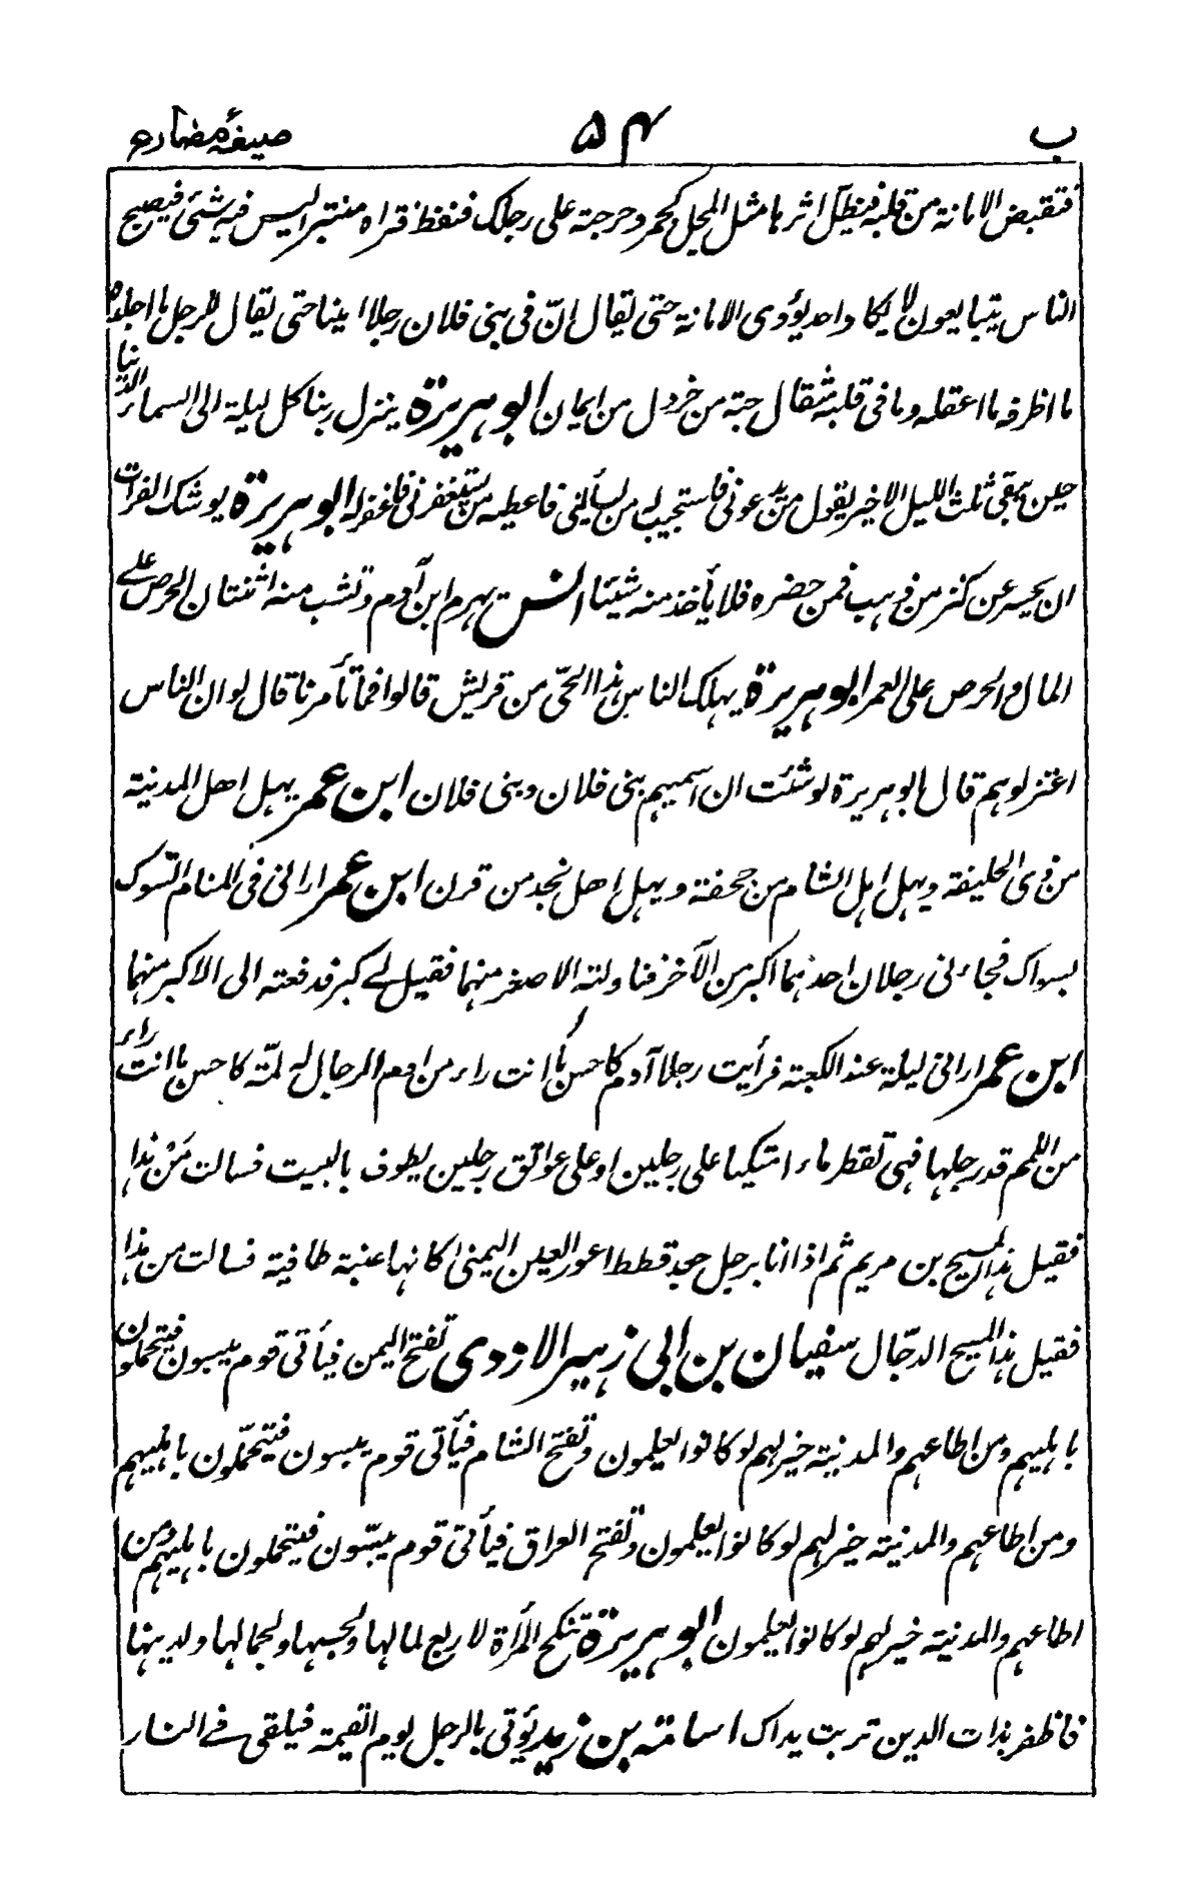 ب ۵۴ صیغۂ مضارع
فتقبض الامانة من قلبه فیظل اثرها مثل المجل کجمر دحرجته علی رجلک فنفط فتراه منتبرا لیس فیه شیئ فیصبح
الناس یتبایعون لا یکاد احد یؤدی الامانة حتی یقال ان فی بنی فلان رجلا امینا حتی یقال للرجل ما اجلده
ما اظرفه ما اعقله وما فی قلبه مثقال حبة من خردل من ایمان ابوہریرة ینزل ربنا کل لیلة الی السماء الدنیا
حین یبقی ثلث اللیل الاخیر یقول من یدعونی فاستجیب له من یسألنی فاعطیه من یستغفرنی فاغفر له ابوہریرة یوشک الفرات
ان یحسر عن کنز من ذہب فمن حضره فلا یأخذ منه شیئا انس یہرم ابن آدم وتشب منه اثنتان الحرص علے
المال والحرص علی العمر ابوہریرة یہلک الناس ہذا الحیّ من قریش قالوا فما تأمرنا قال لو ان الناس
اعتزلوہم قال ابوہریرة لو شئت ان اسمیہم بنی فلان و بنی فلان ابن عمر یہل اهل المدینة
من ذی الحلیفة ویہل اہل الشام من جحفة ویہل اهل نجد من قرن ابن عمر ارانی فی المنام اتسوک
بسواک فجاءنی رجلان احدہما اکبر من الآخر فناولته الاصغر منہما فقیل لے کبر فدفعته الی الاکبر منہما
ابن عمر ارانی لیلة عند الکعبة فرأیت رجلا آدم کاحسن ما انت راء من ادم الرجال له لمّة کاحسن ما انت راء
من اللمم قد رجلہا فہی تقطر ماء متکیا علی رجلین او علی عواتق رجلین یطوف بالبیت فسالت مَنْ ہذا
فقیل ہذا المسیح بن مریم ثم اذا انا برجل جعد قطط اعور العین الیمنی کانہا عنبة طافیة فسالت من ہذا
فقیل ہذا المسیح الدجّال سفیان بن ابی زہیر الازدی تفتح الیمن فیأتی قوم یبسون فیتحملون
باہلیہم ومن اطاعہم والمدینة خیر لہم لو کانوا یعلمون وتفتح الشام فیأتی قوم یبسون فیتحمّلون باہلیہم
ومن اطاعہم والمدینة خیر لہم لو کانوا یعلمون وتفتح العراق فیأتی قوم یبسّون فیتحملون باہلیہم ومن
اطاعہم والمدینة خیر لہم لو کانوا یعلمون ابوہریرة تنکح المرأة لاربع لمالہا ولحسبہا ولجمالہا ولدینہا
فاظفر بذات الدین تربت یداک اسامة بن زید یؤتی بالرجل یوم القیمة فیلقی فے النار